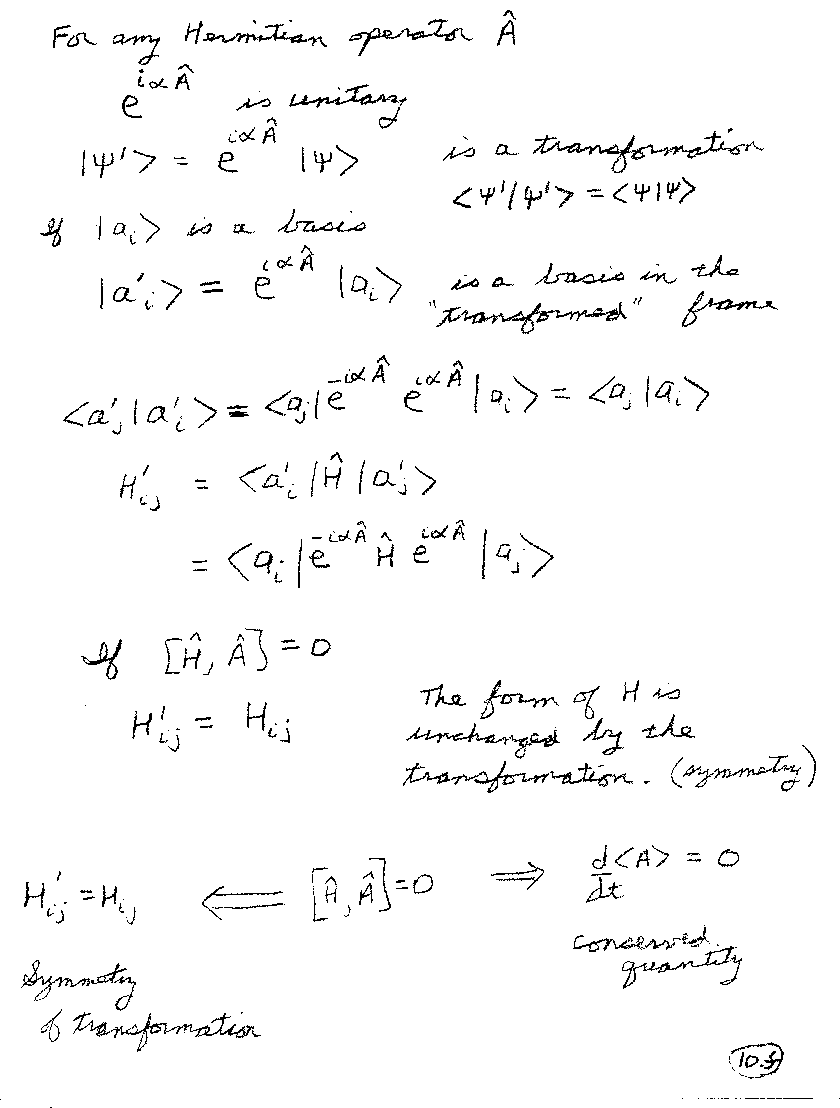 For any Hermitian operator Â
e^{iαÂ} is unitary
|ψ'> = e^{iαÂ} |ψ> is a transformation
<ψ'|ψ'> = <ψ|ψ>
If |aᵢ> is a basis
|a'ᵢ> = e^{iαÂ} |aᵢ> is a basis in the
"transformed" frame
<a'ⱼ|a'ᵢ> = <aⱼ|e^{-iαÂ} e^{iαÂ}|aᵢ> = <aⱼ|aᵢ>
H'ᵢⱼ = <a'ᵢ|Ĥ|a'ⱼ>
= <aᵢ|e^{-iαÂ} Ĥ e^{iαÂ}|aⱼ>
If [Ĥ, Â] = 0
H'ᵢⱼ = Hᵢⱼ
The form of H is
unchanged by the
transformation. (symmetry)
H'ᵢⱼ = Hᵢⱼ ⇐ [Ĥ, Â] = 0 ⇒ d<A>/dt = 0
conserved
quantity
Symmetry
of transformation